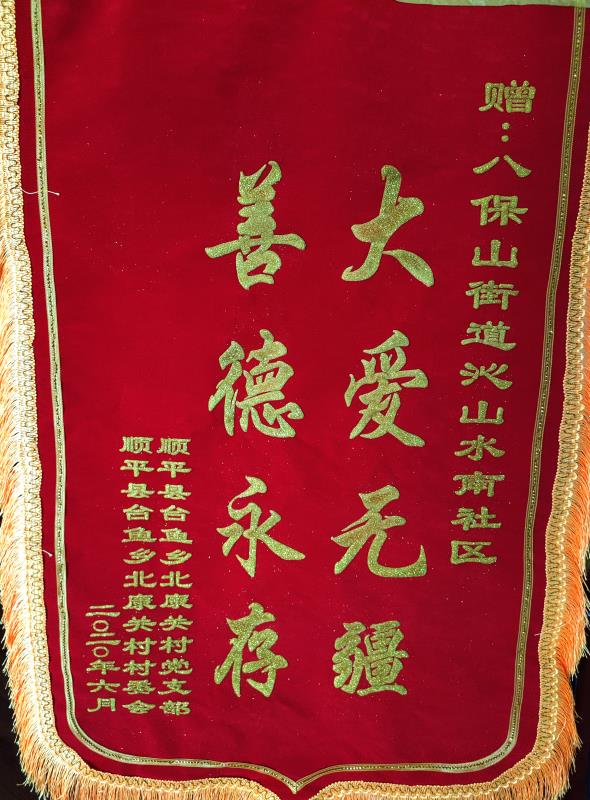 赠:八保山街道沁山水南社区
大爱无疆
善德永存
顺平县台鱼乡北康关村党支部
顺平县台鱼乡北康关村村委会
二〇二〇年六月